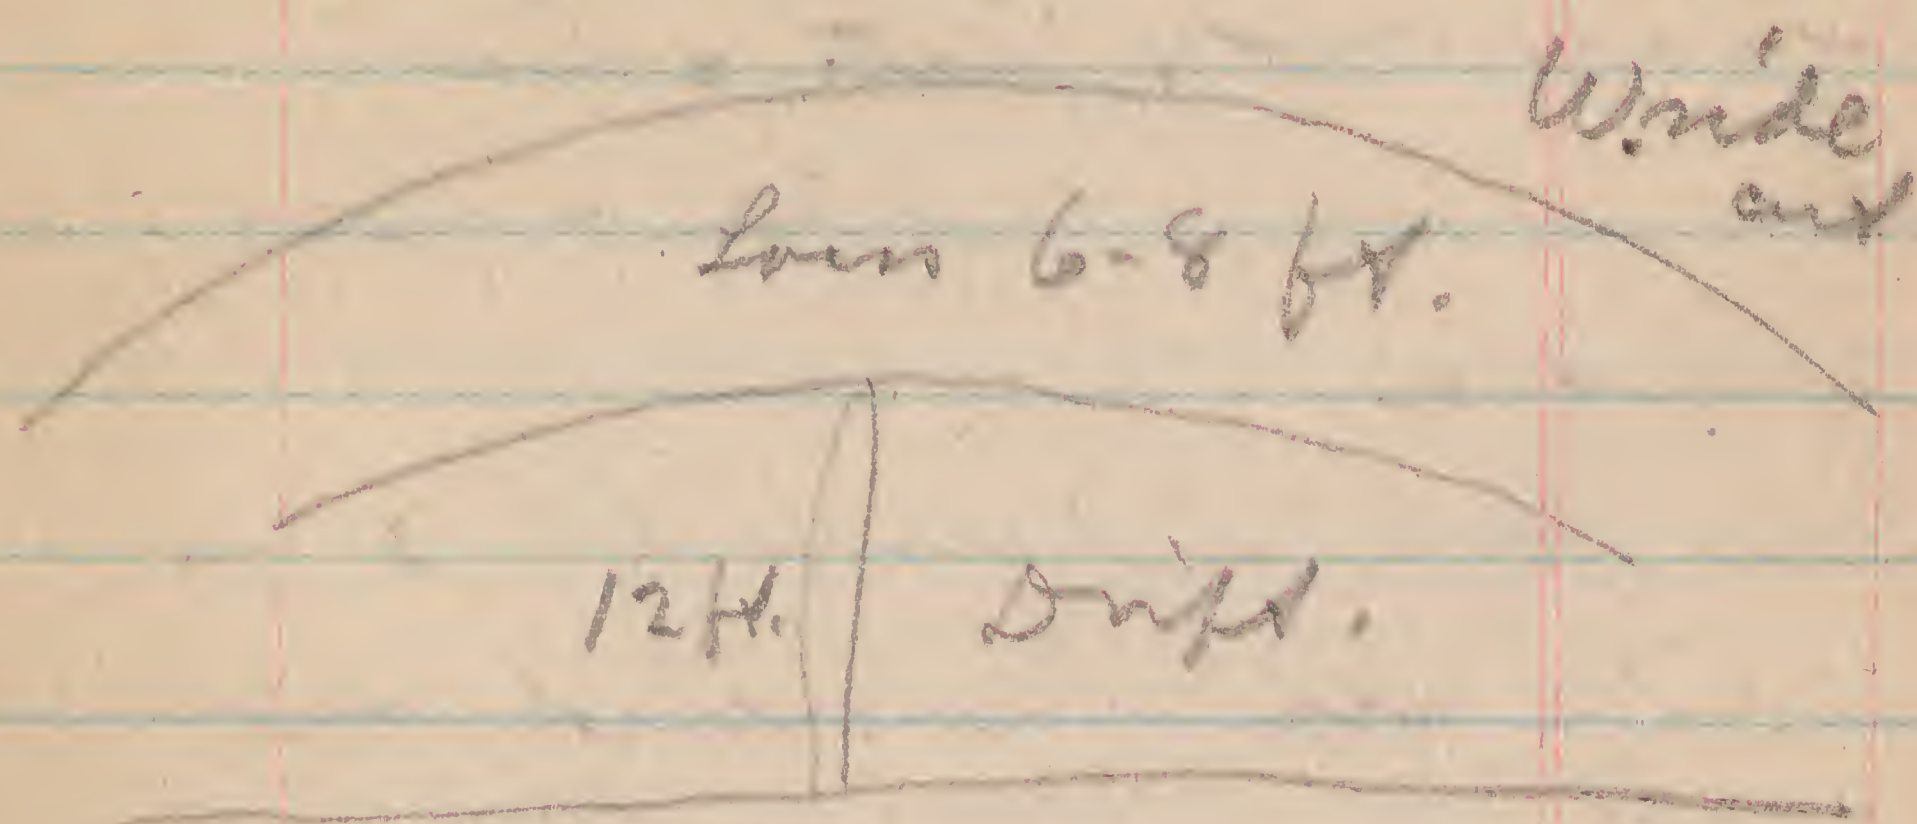 Wade
cut
Loess 6-8 ft.
12 ft. Drift.